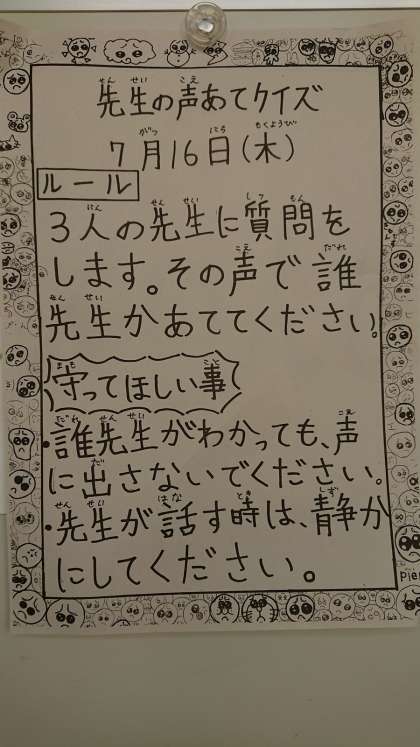 先生の声あてクイズ
7月16日(木)
ルール
3人の先生に質問を
します。その声で誰
先生かあててください。
守ってほしい事
・誰先生がわかっても、声
に出さないでください。
・先生が話す時は、静か
にしてください。